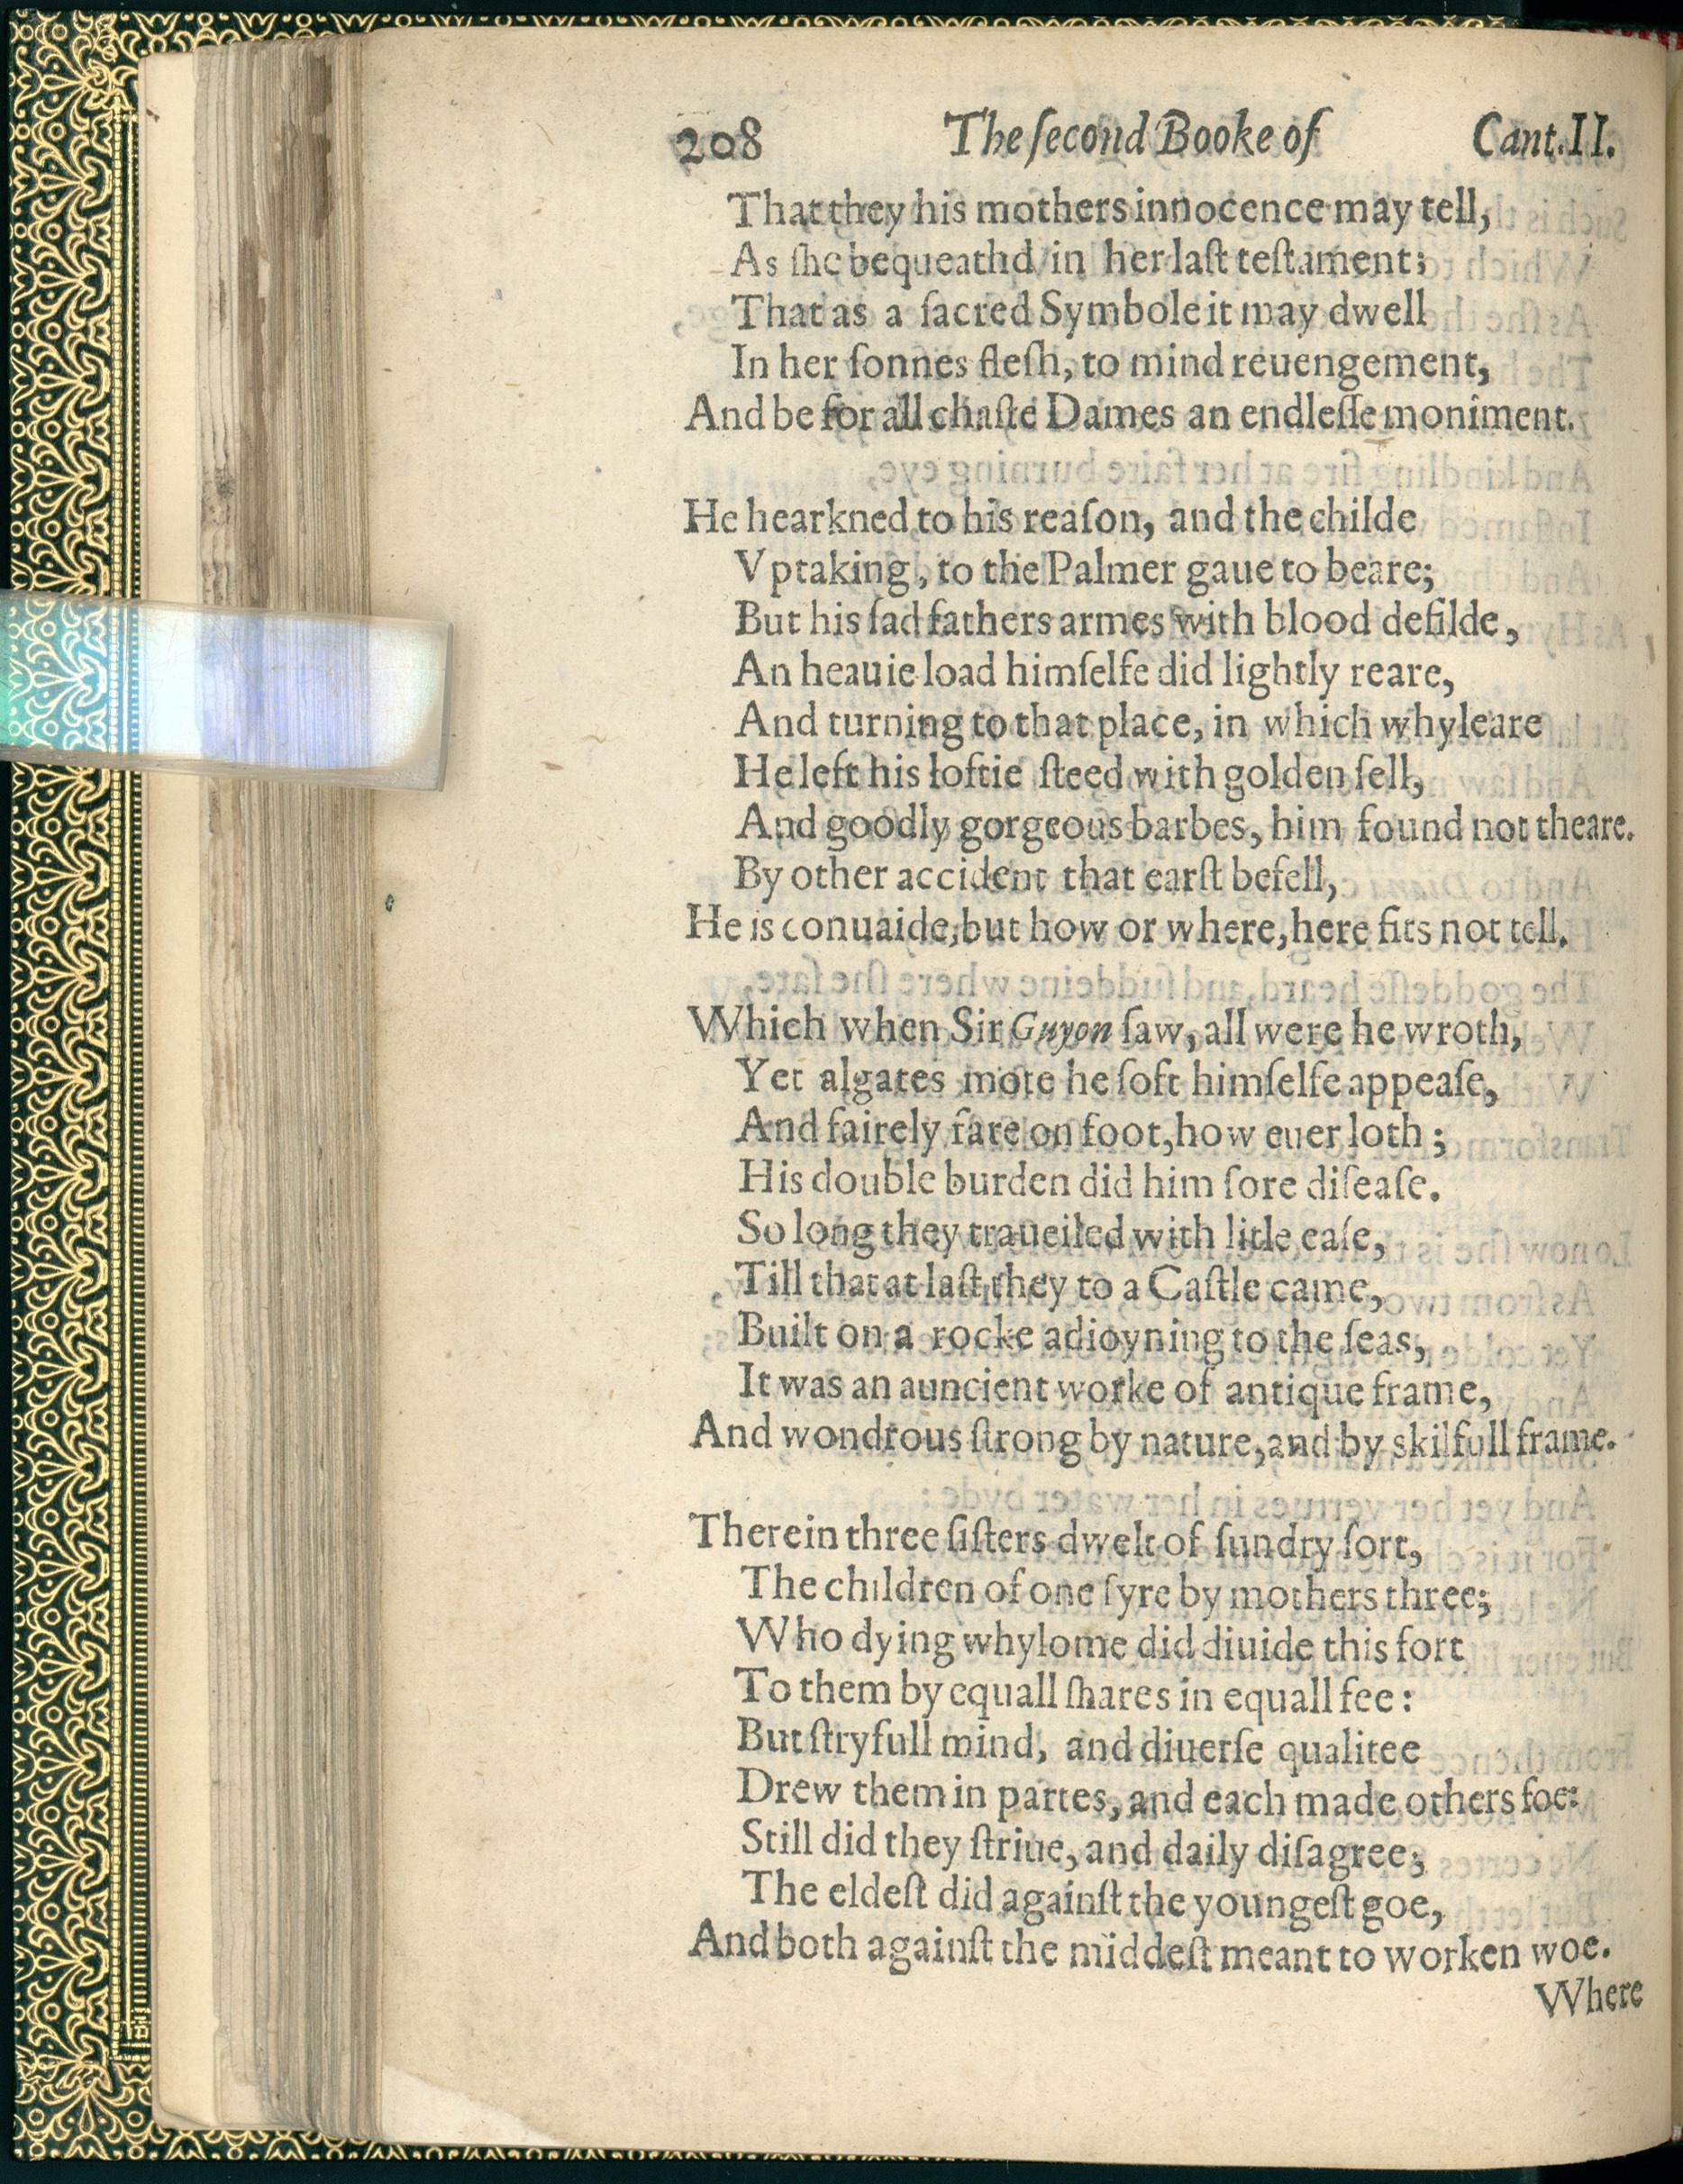 208 The ſecond Booke of Cant. II.
That they his mothers innocence may tell,
As ſhe bequeathd in her laſt teſtament;
That as a ſacred Symbole it may dwell
In her ſonnes fleſh, to mind reuengement,
And be for all chaſte Dames an endleſſe moniment.
He hearkned to his reaſon, and the childe
Vptaking, to the Palmer gaue to beare;
But his ſad fathers armes with blood defilde,
An heauie load himſelfe did lightly reare,
And turning to that place, in which whyleare
He left his loftie ſteed with golden ſell,
And goodly gorgeous barbes, him found not theare.
By other accident that earſt befell,
He is conuaide, but how or where, here fits not tell.
Which when Sir Guyon ſaw, all were he wroth,
Yet algates mote he ſoft himſelfe appeaſe,
And fairely fare on foot, how euer loth;
His double burden did him ſore diſeaſe.
So long they traueiled with litle eaſe,
Till that at laſt they to a Caſtle came,
Built on a rocke adioyning to the ſeas,
It was an auncient worke of antique frame,
And wondrous ſtrong by nature, and by skilfull frame.
Therein three ſiſters dwelt of ſundry ſort,
The children of one ſyre by mothers three;
Who dying whylome did diuide this fort
To them by equall ſhares in equall fee:
But ſtryfull mind, and diuerſe qualitee
Drew them in partes, and each made others foe:
Still did they ſtriue, and daily diſagree;
The eldeſt did againſt the youngeſt goe,
And both againſt the middeſt meant to worken woe.
Where